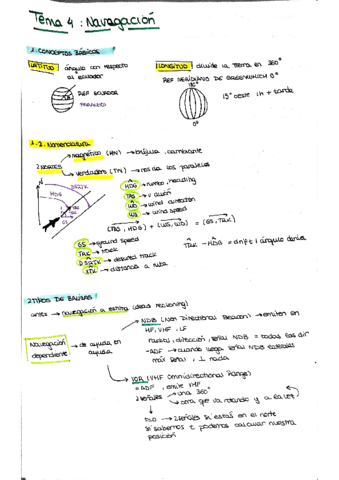 Tema 4: Navegación
1. CONCEPTOS BÁSICOS
LATITUD ángulo con respecto
al ecuador
REF ECUADOR
PARALELO
LONGITUD divide la tierra en 360°
REF MERIDIANO DE GREENWICH 0°
15° oeste 1h + tarde
0°
1.2. Nomenclatura
2 NORTES
magnético (MN) → brújula, cambiante
verdadero (TN) →
N
HDG
DSRTK
HDG → rumbo, heading
TAS → v avión
WD → wind direction
WS → wind speed
(TAS, HDG) + (WS, WD) = (GS, TAK)
GS → ground speed
TAK → track
DSRTK → desired track
XTK → distancia a ruta
TAK - HDG = drift 1 ángulo deriva
2 TIPOS DE BALIZAS
antes → navegación a estima (dead reckoning)
Navegación
dependiente
→ de ayuda en
ayuda
NDB (Non Directional Beacon) → emiten en
HF, VHF, LF
radial, dirección, señal NDB = todas las dir
ADF → cuando llega señal NDB
max señal, ⊥ nada
VOR (VHF Omnidirectional Range)
= ADF, emite VHF
2 SEÑALES
una 360°
otra que va rotando y a la vez
→ 2 SEÑALES si estás en el norte
si sabemos t podemos calcular nuestra
posición